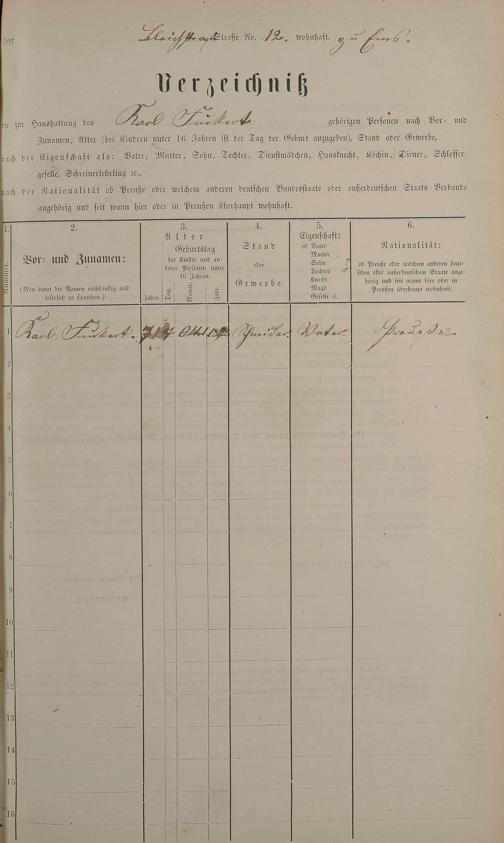 Bleichstraße straße No. 12. wohnhaft. zu Ems.
Verzeichniß
der zur Haushaltung des Karl gehörigen Personen nach Vor- und
Zunamen, Alter (bei Kindern unter 16 Jahren ist der Tag der Geburt anzugeben), Stand oder Gewerbe,
nach der Eigenschaft als: Vater, Mutter, Sohn, Tochter, Dienstmädchen, Hausknecht, Köchin, Diener, Schlosser-
geselle, Schreinerlehrling ꝛc.,
nach der Nationalität ob Preuße oder welchem anderen deutschen Bundesstaate oder außerdeutschen Staats-Verbande
angehörig und seit wann hier oder in Preußen überhaupt wohnhaft.
1.
Nummer.
2.
Vor- und Zunamen:
(Man bittet die Namen vollständig und
leserlich zu schreiben.)
3.
Alter
Geburtstag
der Kinder und an-
derer Personen unter
16 Jahren.
Jahre.
Tag.
Monat.
Jahr.
4.
Stand
oder
Gewerbe.
5.
Eigenschaft:
ob Vater
Mutter
Sohn
Tochter
Knecht
Magd
Geselle ꝛc.
6.
Nationalität:
ob Preuße oder welchem anderen deut-
schen oder außerdeutschen Staate ange-
hörig und seit wann hier oder in
Preußen überhaupt wohnhaft.
1 Karl Schneider Vater. Preuße
2
3
4
5
6
7
8
9
10
11
12
13
14
15
16